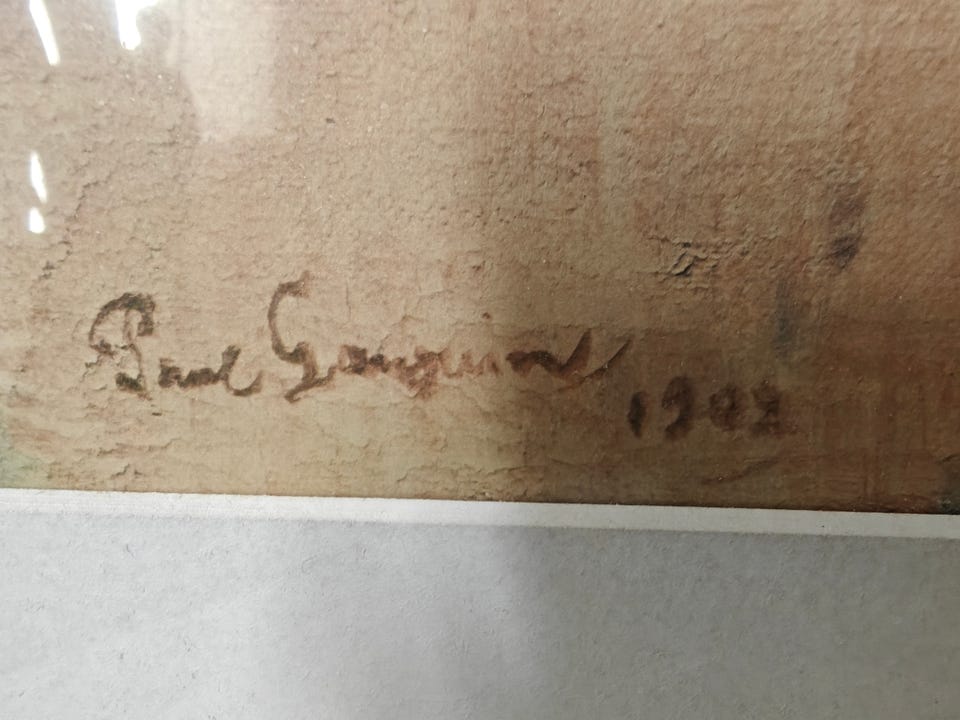 Paul Gauguin
1902